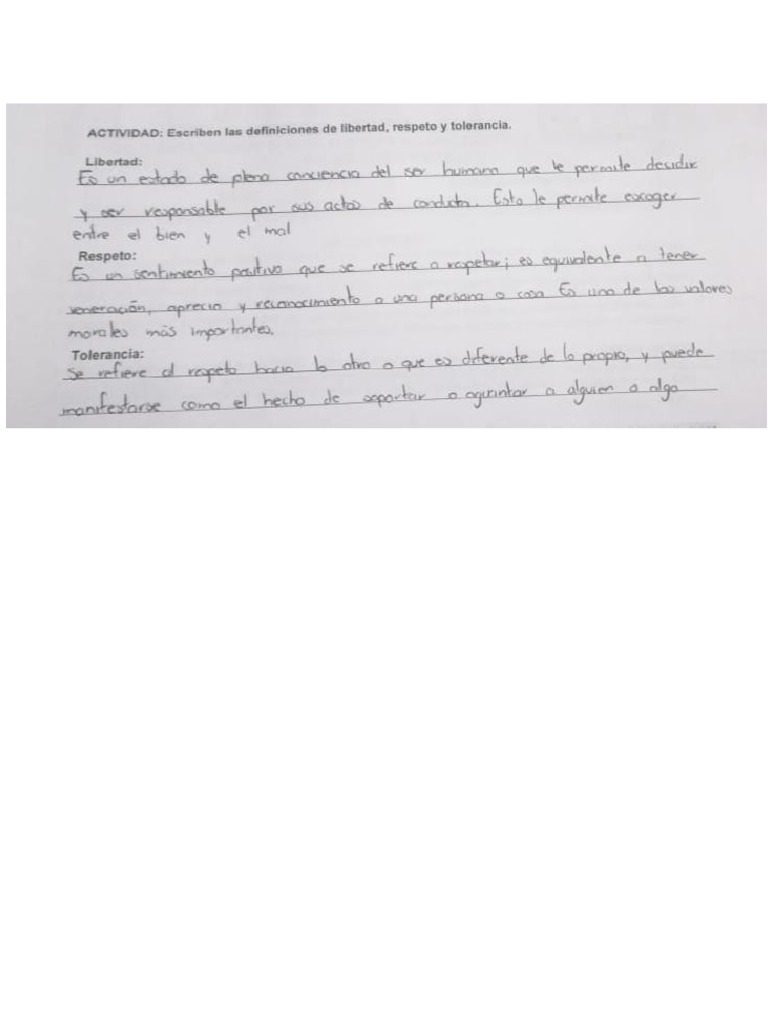 ACTIVIDAD: Escriben las definiciones de libertad, respeto y tolerancia.
Libertad:
Es un estado de plena conciencia del ser humano que le permite desidir
y ser responsable por sus actos de conducta. Esto le permite escoger
entre el bien y el mal
Respeto:
Es un sentimiento positivo que se refiere a respetar; es equivalente a tener
veneración, aprecio y reconocimiento a una persona o cosa Es uno de los valores
morales más importantes.
Tolerancia:
Se refiere el respeto hacia lo otro o que es diferente de lo propio, y puede
manifestarse como el hecho de soportar o aguantar a alguien o algo